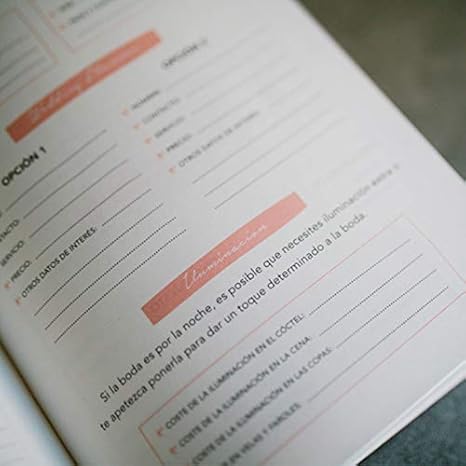 OPCIÓN 2
NOMBRE:
CONTACTO:
SERVICIO:
PRECIO:
OTROS DATOS DE INTERÉS:
OPCIÓN 1
SERVICIO:
PRECIO:
OTROS DATOS DE INTERÉS:
Iluminación
Si la boda es por la noche, es posible que necesites iluminación extra o
te apetezca ponerla para dar un toque determinado a la boda.
COSTE DE LA ILUMINACIÓN EN EL CÓCTEL:
COSTE DE LA ILUMINACIÓN EN LA CENA:
COSTE DE LA ILUMINACIÓN EN LAS COPAS:
EN VELAS Y FAROLES: